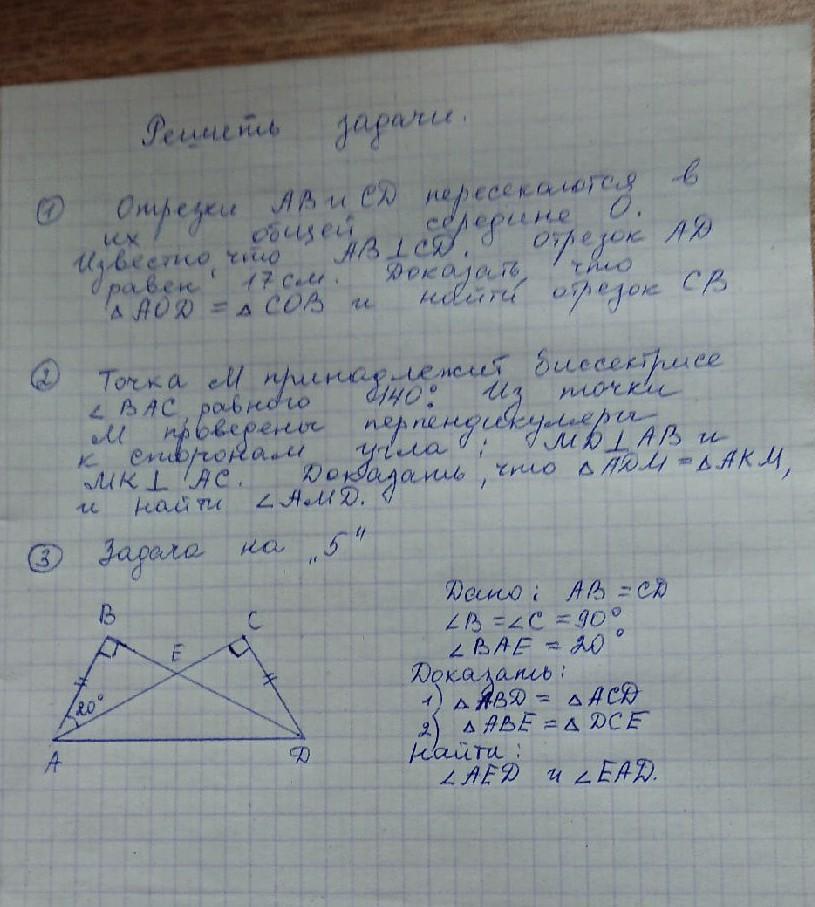 Решить задачи.
① Отрезки AB и CD пересекаются в
их общей середине O.
Известно, что AB⊥CD. Отрезок AD
равен 17 см. Доказать, что
△AOD = △COB и найти отрезок CB
② Точка M принадлежит биссектрисе
∠BAC, равного 140°. Из точки
M проведены перпендикуляры
к сторонам угла: MD⊥AB и
MK⊥AC. Доказать, что △ADM = △AKM,
и найти ∠AMD.
③ Задача на „5"
B C
E
20°
A D
Дано: AB = CD
∠B = ∠C = 90°
∠BAE = 20°
Доказать:
1) △ABD = △ACD
2) △ABE = △DCE
Найти:
∠AED и ∠EAD.